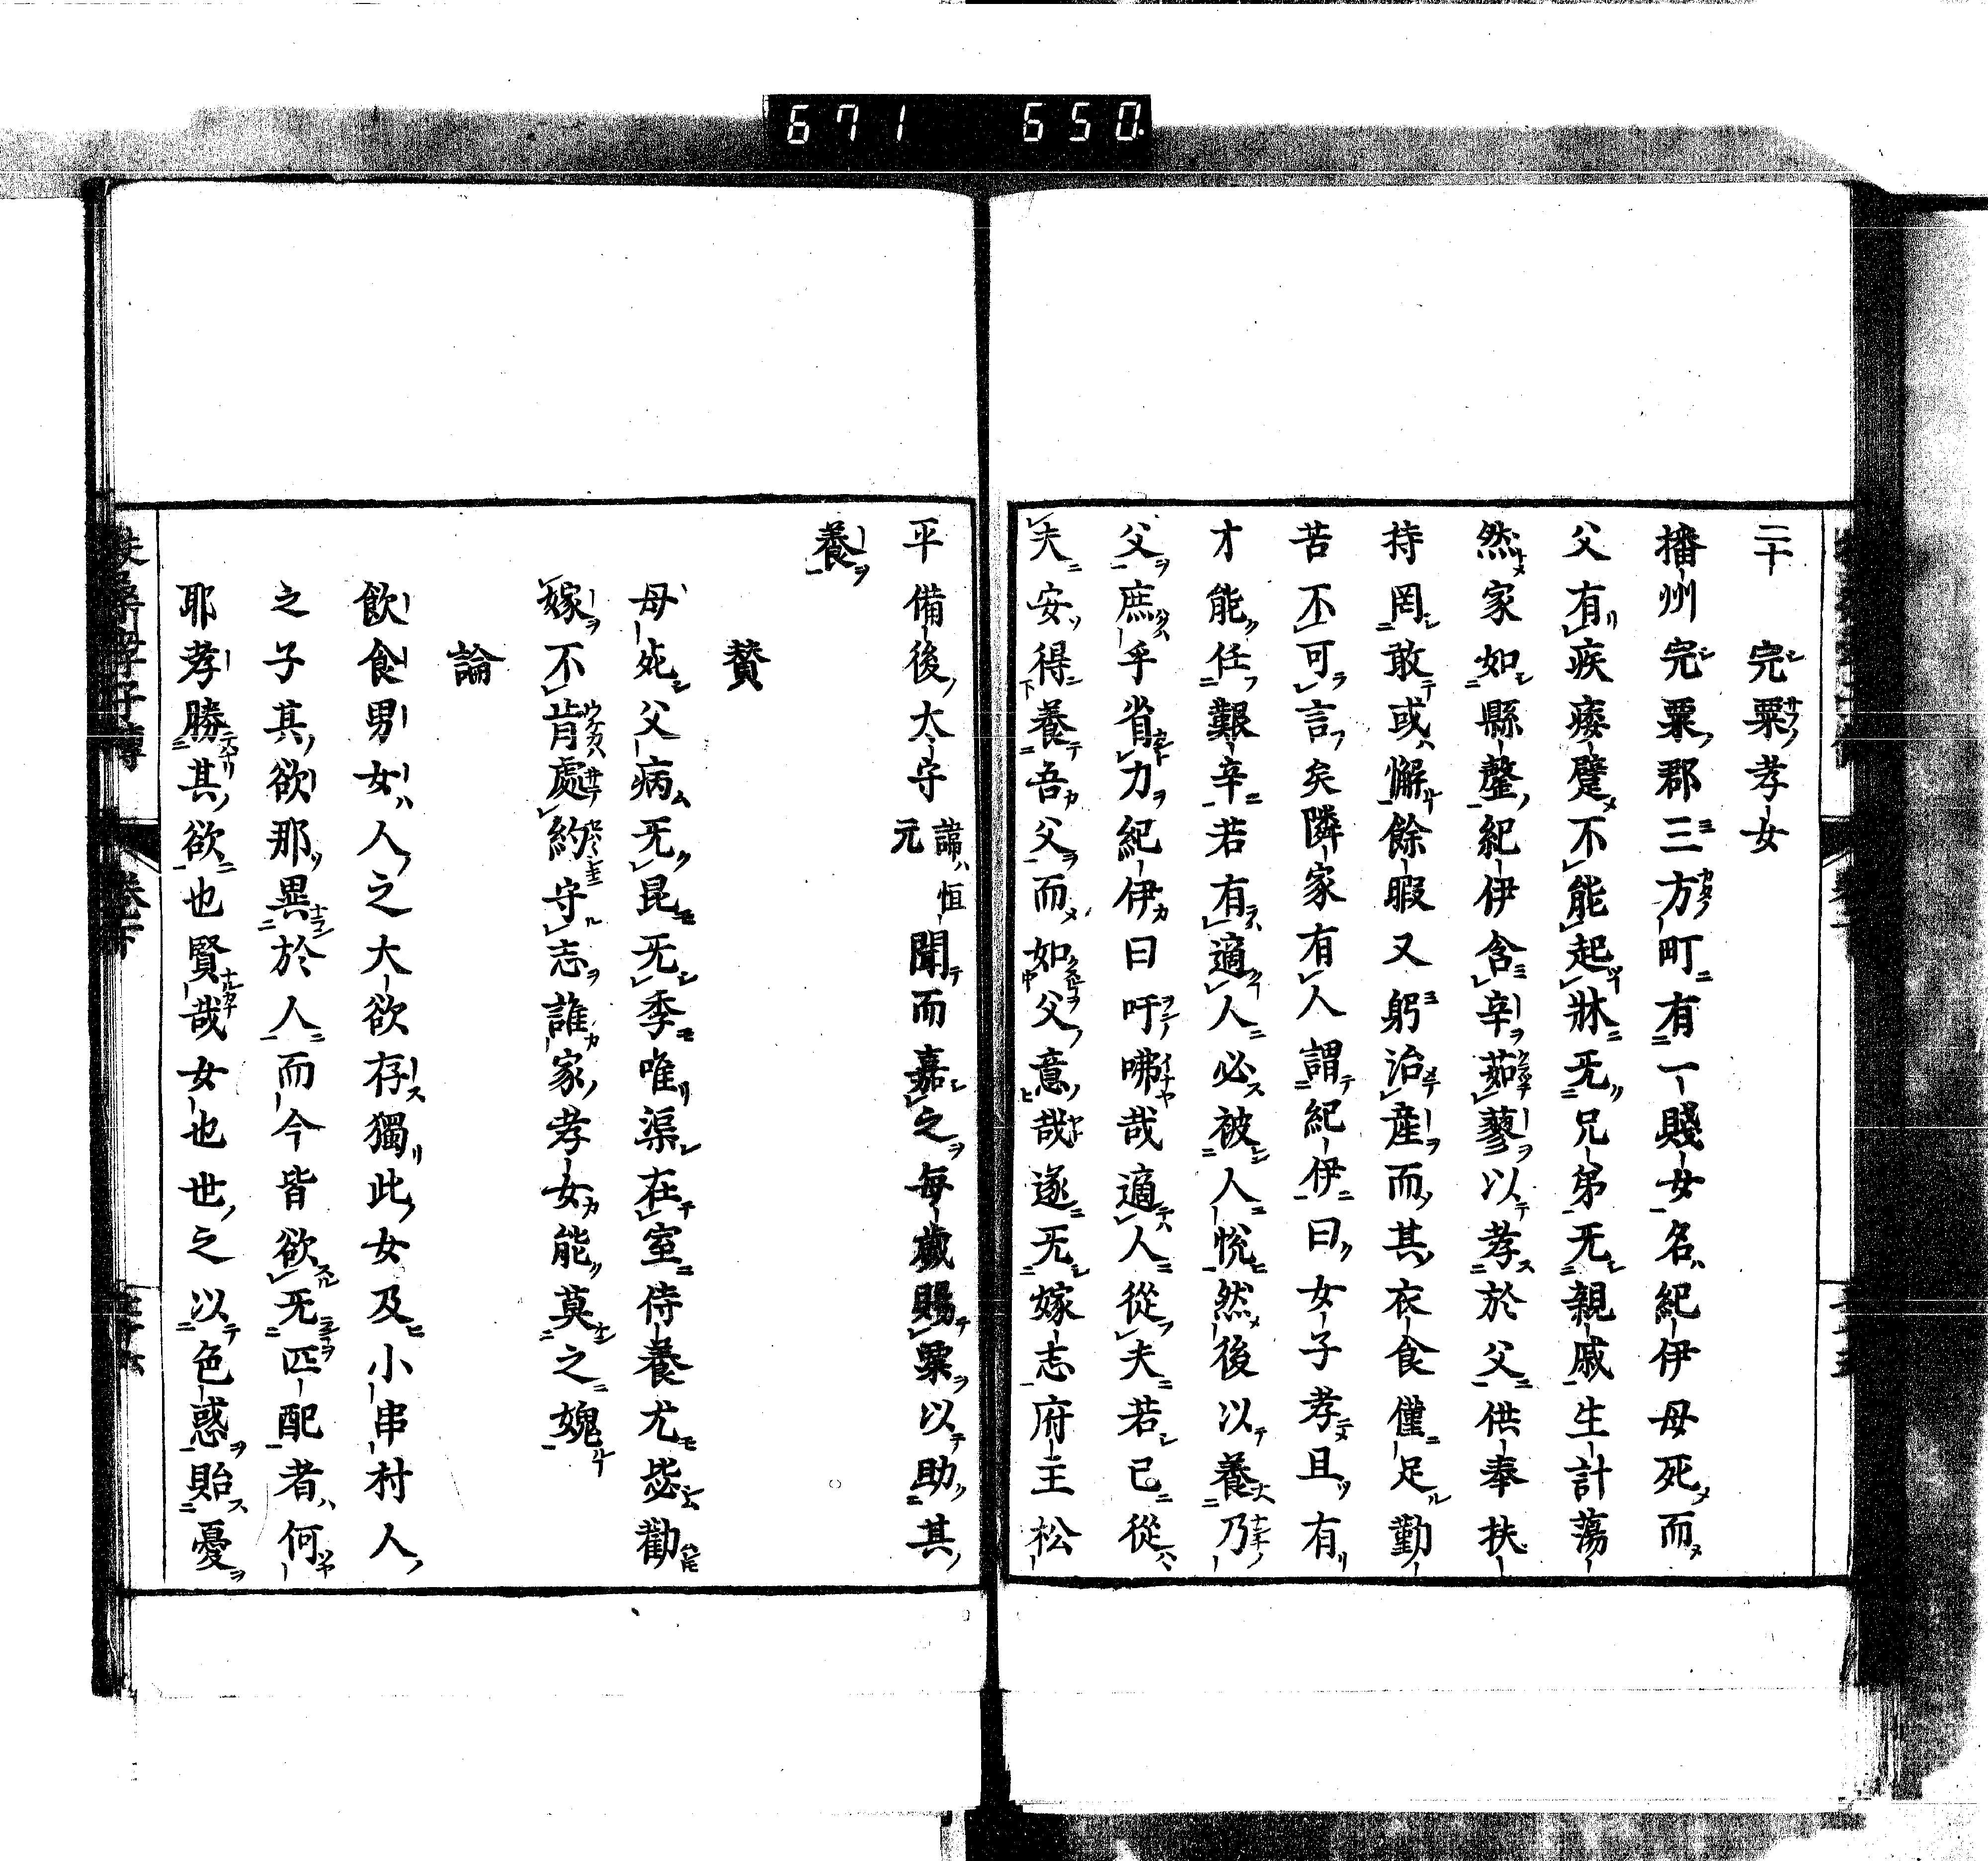 671 650
二十 完粟孝女
播州完粟郡三方町有一賤女名紀伊母死而
父有疾痿躄不能起牀无兄弟无親戚生計蕩
然家如縣罄紀伊含辛茹蓼以孝於父供奉扶
持罔敢或懈餘暇又躬治產而其衣食僅足勤
苦不可言矣隣家有人謂紀伊曰女子孝且有
才能任艱辛若有適人必被人悅然後以養乃
父庶乎省力紀伊曰吁咈哉適人從夫若已從
夫安得養吾父而如父意哉遂无嫁志府主松
平備後太守諱恒元聞而嘉之每歲賜粟以助其
養
贊
母死父病无昆无季唯渠在室侍養尤毖勸
嫁不肯處約守志誰家孝女能莫之媿
論
飲食男女人之大欲存獨此女及小串村人
之子其欲那異於人而今皆欲无匹配者何
耶孝勝其欲也賢哉女也世之以色惑貽憂
扶桑孝子傳